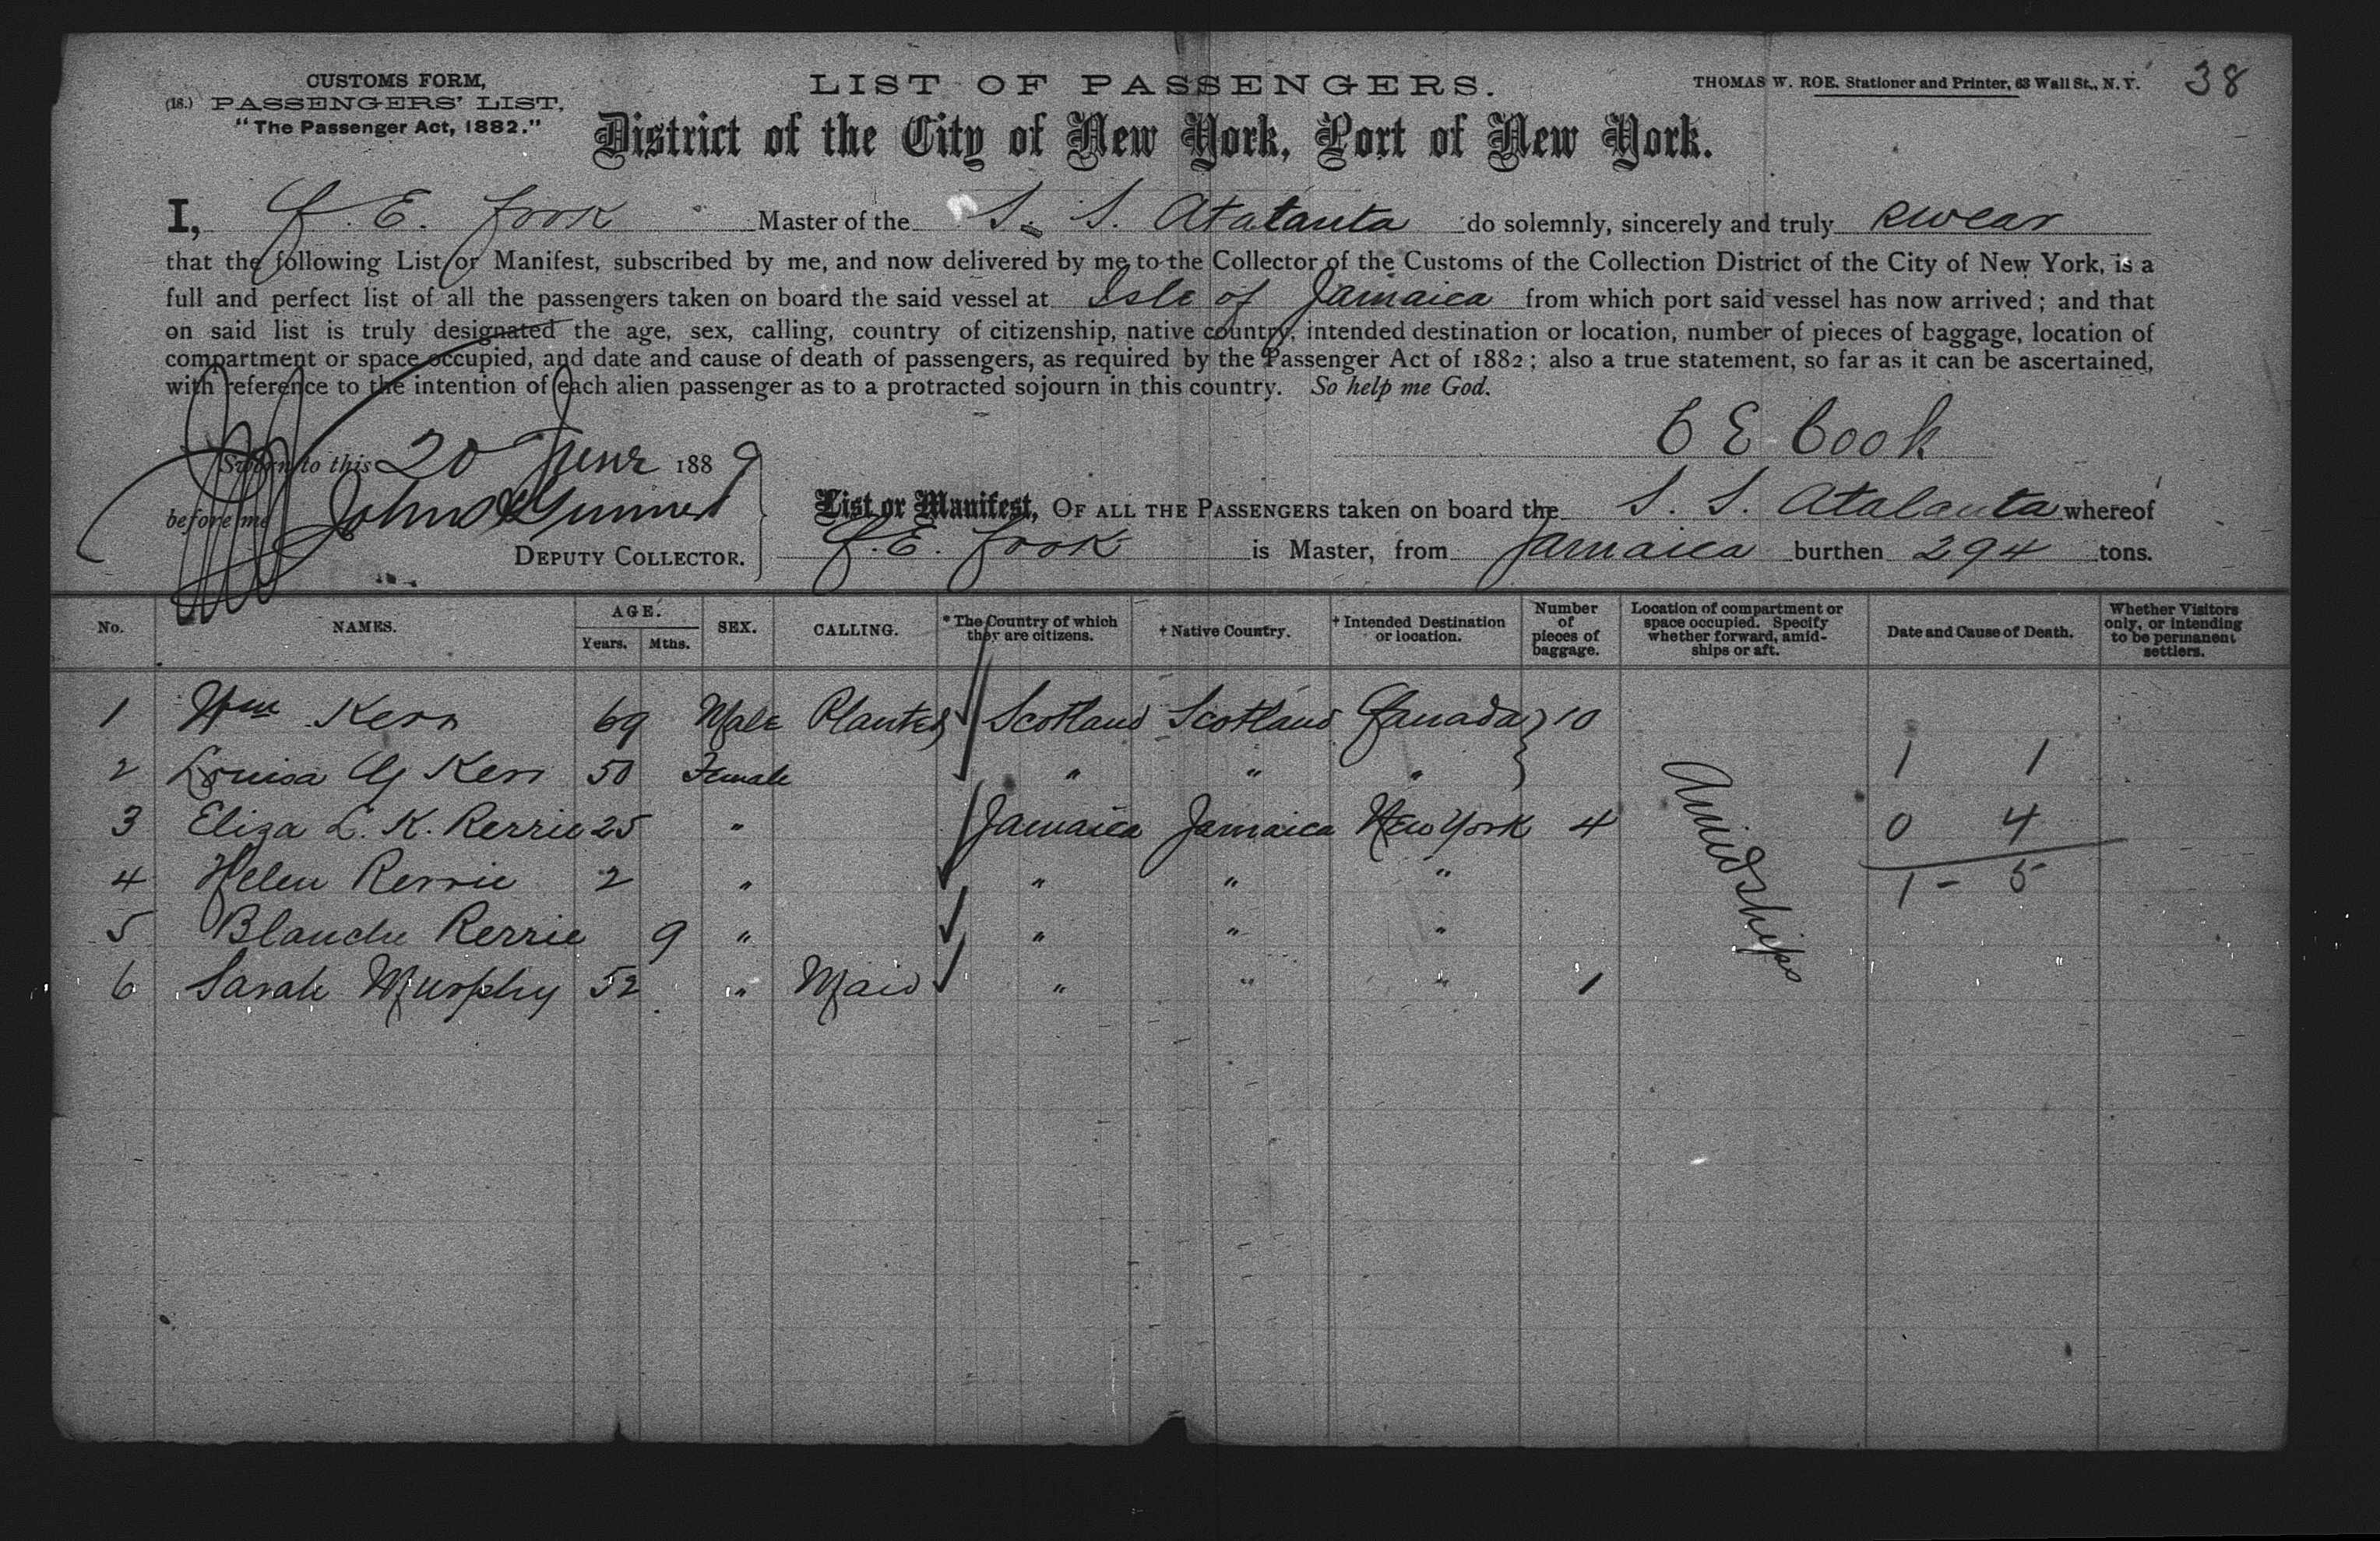 CUSTOMS FORM,
(18.) PASSENGERS' LIST,
"The Passenger Act, 1882."
LIST OF PASSENGERS.
THOMAS W. ROE. Stationer and Printer, 63 Wall St., N. Y.
38
District of the City of New York, Port of New York.
I, C. E. Cook Master of the S. S. Atalanta do solemnly, sincerely and truly swear
that the following List or Manifest, subscribed by me, and now delivered by me to the Collector of the Customs of the Collection District of the City of New York, is a
full and perfect list of all the passengers taken on board the said vessel at Isle of Jamaica from which port said vessel has now arrived; and that
on said list is truly designated the age, sex, calling, country of citizenship, native country, intended destination or location, number of pieces of baggage, location of
compartment or space occupied, and date and cause of death of passengers, as required by the Passenger Act of 1882; also a true statement, so far as it can be ascertained,
with reference to the intention of each alien passenger as to a protracted sojourn in this country. So help me God.
C E Cook
Sworn to this 20 June 1889
before me John
DEPUTY COLLECTOR.
List or Manifest, OF ALL THE PASSENGERS taken on board the S. S. Atalanta whereof
C. E. Cook is Master, from Jamaica burthen 294 tons.
No. NAMES. AGE. Years. Mths. SEX. CALLING. * The Country of which they are citizens. † Native Country. † Intended Destination or location. Number of pieces of baggage. Location of compartment or space occupied. Specify whether forward, amidships or aft. Date and Cause of Death. Whether Visitors only, or intending to be permanent settlers.
1 Wm Kerr 69 Male Planter Scotland Scotland Canada 10
2 Louisa Kerr 50 Female " " " 1 1
3 Eliza L. K. Rerrie 25 " Jamaica Jamaica New York 4 0 4
4 Helen Rerrie 2 " " " " 1 - 5
5 Blanche Rerrie 9 " " " "
6 Sarah Murphy 52 " Maid " " " 1
Amidships